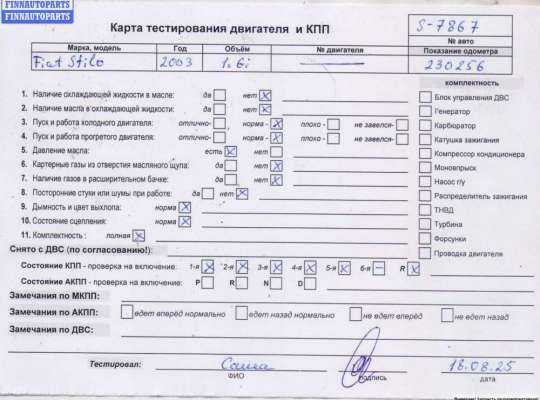 FINNAUTOPARTS
FINNAUTOPARTS
Карта тестирования двигателя и КПП
S-7867
№ авто
Марка, модель Год Объём № двигателя Показание одометра
Fiat Stilo 2003 1.6i 230256
комплектность
1. Наличие охлаждающей жидкости в масле: да нет X
2. Наличие масла в охлаждающей жидкости: да нет X
3. Пуск и работа холодного двигателя: отлично- норма - X плохо - не завелся-
4. Пуск и работа прогретого двигателя: отлично- норма - X плохо - не завелся-
5. Давление масла: есть X нет
6. Картерные газы из отверстия масляного щупа: да нет X
7. Наличие газов в расширительном бачке: да нет X
8. Посторонние стуки или шумы при работе: да нет X
9. Дымность и цвет выхлопа: норма X
10. Состояние сцепления: норма X
11. Комплектность : полная X
Блок управления ДВС
Генератор
Карбюратор
Катушка зажигания
Компрессор кондиционера
Моновпрыск
Насос г/у
Распределитель зажигания
ТНВД
Турбина
Форсунки
Проводка двигателя
Снято с ДВС (по согласованию!):
Состояние КПП - проверка на включение: 1-я X 2-я X 3-я X 4-я X 5-я X 6-я – R X
Состояние АКПП - проверка на включение: P R N D
Замечания по МКПП:
Замечания по АКПП: едет вперёд нормально едет назад нормально не едет вперёд не едет назад
Замечания по ДВС:
Тестировал: Саша 18.08.25
ФИО подпись дата